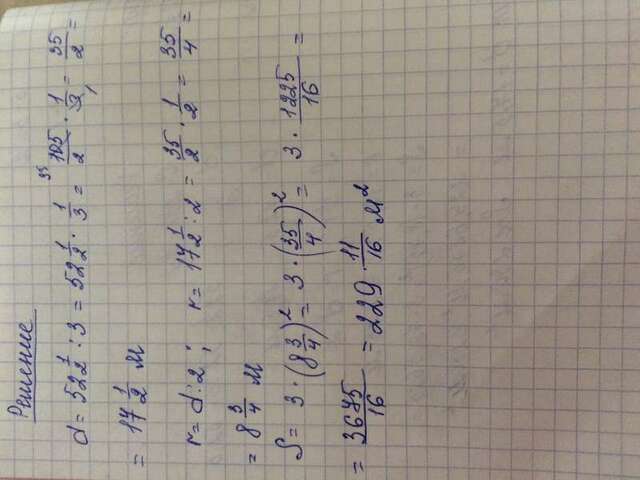 Решение
d = 52 1/2 : 3 = 52 1/2 · 1/3 = 105/2 · 1/3 = 35/2 =
= 17 1/2 м
r = d : 2 ; r = 17 1/2 : 2 = 35/2 · 1/2 = 35/4 =
= 8 3/4 м
S = 3 · (8 3/4)² = 3 · (35/4)² = 3 · 1225/16 =
= 3675/16 = 229 11/16 м²